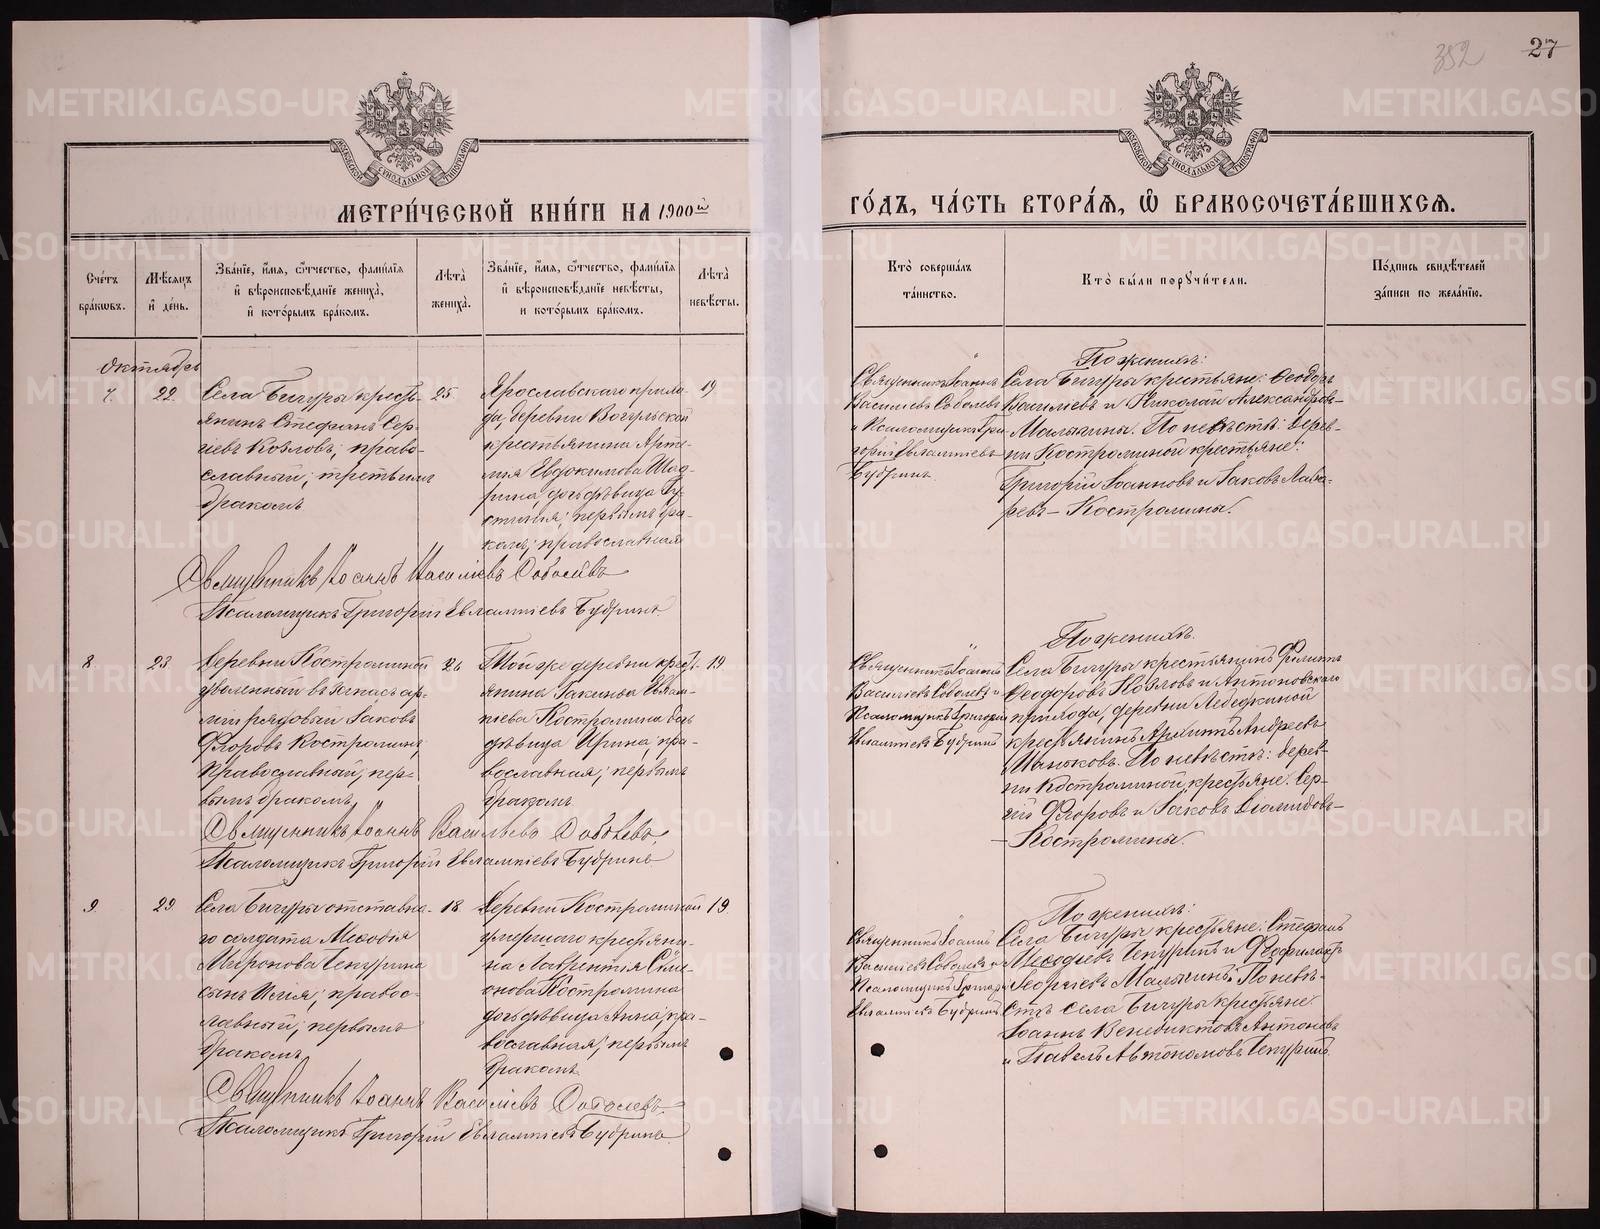 352 27
МЕТРИ́ЧЕСКОЙ КНИ́ГИ НА 1900й
ГО́ДЪ, ЧА́СТЬ ВТОРА́Я, Ѿ БРАКОСОЧЕТА́ВШИХСЯ.
Сче́тъ бра́кѡвъ.
Мѣ́сяцъ и҆ де́нь.
Зва́нїе, и҆́мя, ѻ҆́тчество, фами́лїя
и҆ вѣроисповѣ́данїе жениха̀,
и҆ кото́рымъ бра́комъ.
Лѣ́та жениха̀.
Зва́нїе, и҆́мя, ѻ҆́тчество, фами́лїя
и҆ вѣроисповѣ́данїе невѣ́сты,
и кото́рымъ бра́комъ.
Лѣ́та невѣ́сты.
Кто̀ соверша́лъ
та́инство.
Кто̀ бы́ли порꙋчи́тели.
По́дпись свидѣ́телей
за́писи по жела́нїю.
Октябрь
7. 22. Села Бичуры кресть-
янинъ Стефанъ Сер-
гіевъ Козловъ; право-
славный; третьимъ
бракомъ
25.
Ярославскаго прихо-
да, деревни Вогульской
крестьянина Арте-
мія Евдокимова Шад-
рина, дочь дѣвица Іу-
стинія; первымъ бра-
комъ; православная
19
Священникъ Іоаннъ
Василіевъ Соболевъ
и Псаломщикъ Гри-
горій Евлампіевъ
Будринъ
По женихѣ:
Села Бичуры крестьяне: Ѳеодоръ
Василіевъ и Николай Александров-
Малыгины. По невѣстѣ: дерев-
ни Костроминой крестьяне:
Григорій Іоанновъ и Іаковъ Лаза-
ревъ - Костромины.
Священникъ Іоаннъ Василіевъ Соболевъ
Псаломщикъ Григорій Евлампіевъ Будринъ
8. 23. Деревни Костроминой
уволенный въ запасъ ар-
міи рядовый Іаковъ
Флоровъ Костроминъ,
православный; пер-
вымъ бракомъ
26
Той же деревни крест-
янина Іакинѳа Евлам-
піева Костромина дочь
дѣвица Ирина, пра-
вославная; первымъ
бракомъ
19
Священникъ Іоаннъ
Василіевъ Соболевъ и
Псаломщикъ Григорій
Евлампіевъ Будринъ
По женихѣ.
Села Бичуры крестьянинъ Филиппъ
Ѳеодоровъ Козловъ и Антоновскаго
прихода, деревни Лебедкиной
крестьянинъ Архиппъ Андреевъ
Маньковъ. По невѣстѣ: дерев-
ни Костроминой крестьяне: Сер-
гій Флоровъ и Іаковъ Діомидовъ-
- Костромины.
Священникъ Іоаннъ Василіевъ Соболевъ,
Псаломщикъ Григорій Евлампіевъ Будринъ
9. 29. Села Бичуры отставна-
го солдата Меѳодія
Миронова Чепурина
сынъ Илія; правос-
лавный; первымъ
бракомъ
18.
Деревни Костроминой
умершаго крестьяни-
на Лаврентія Сѵме-
онова Костромина
дочь дѣвица Анна, пра-
вославная; первымъ
бракомъ
19.
Священникъ Іоаннъ
Василіевъ Соболевъ и
Псаломщикъ Григорій
Евлампіевъ Будринъ
По женихѣ:
Села Бичуры крестьяне: Стефанъ
Меѳодіевъ Чепуринъ и Ѳеофилактъ
Георгіевъ Малыгинъ; По невѣ-
стѣ села Бичуры крестьяне:
Іоаннъ Венедиктовъ Антоновъ
и Павелъ Автономовъ Чепуринъ.
Священникъ Іоаннъ Василіевъ Соболевъ.
Псаломщикъ Григорій Евлампіевъ Будринъ.